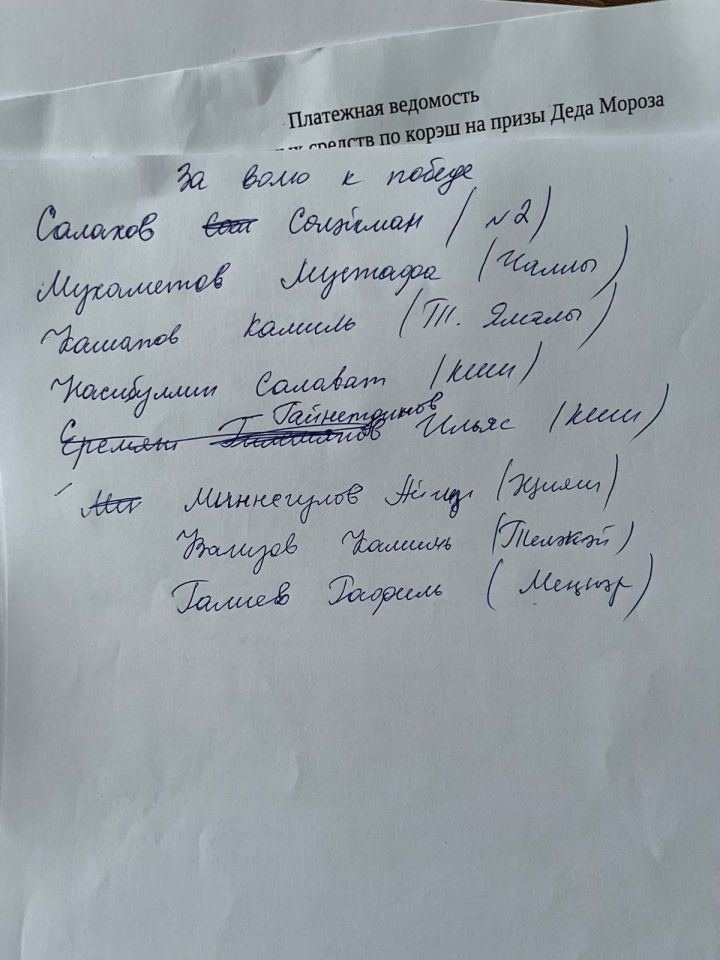 Платежная ведомость
средств по корэш на призы Деда Мороза
За волю к победе
Салахов Сөләйман (№2)
Мухаметов Мустафа (Чаллы)
Кашапов Камиль (Т. Ямалы)
Насибуллин Салават (кши)
Гайнетдинов
Ильяс (кши)
Миннегулов (Җилән)
Вагизов Камиль
Галиев Рафиль (Меңнәр)